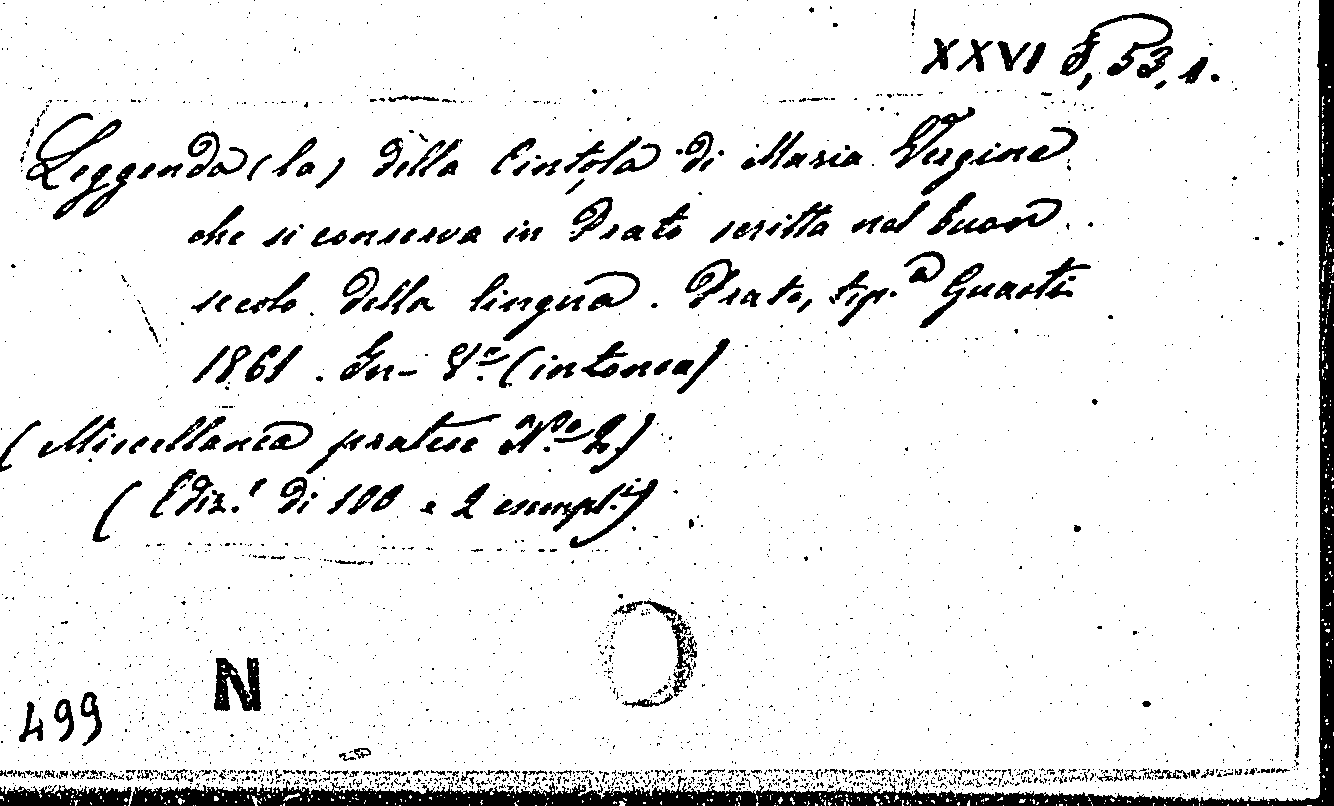 XXVI F, 53, 1.
Leggenda (la) della Cintola di Maria Vergine
che si conserva in Prato scritta nel buon
secolo della lingua. Prato, tip.a Guasti
1861. In-8.o (intonsa)
(Miscellanea pratese N.o 2.)
(Ediz.e di 100 e 2 esempl.i)
N
499